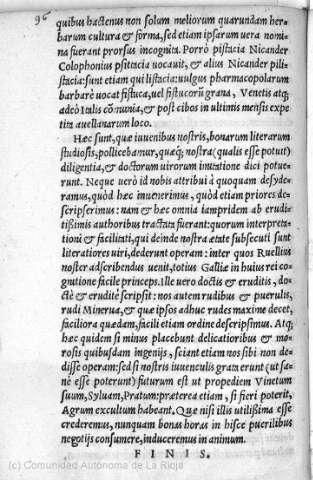 96
quibus hactenus non solum meliorum quarundam her-
barum cultura & forma, sed etiam ipsarum uera nomi
na fuerant prorsus incognita. Porrò pistacia Nicander
Colophonius psitacia uocauit, & alius Nicander pili-
stacia: sunt etiam qui listacia: uulgus pharmacopolarum
barbarè uocat fistuca, uel fistucorũ grana, Venetis atq;
adeò Italis cõmunia, & post cibos in ultimis mensis expe
tita auellanarum loco.
Hæc sunt, quæ iuuenibus nostris, bonarum literarum
studiosis, pollicebamur, quæq; nostra (qualis esse potut)
diligentia, & doctorum uirorum imitatione dici potue-
runt. Neque uerò id nobis attribui à quoquam desyde-
ramus, quòd hæc inuenerimus, quòd etiam priores de-
scripserimus: nam & hæc omnia iampridem ab erudi-
tißimis authoribus tractata fuerant: quorum interpretati
tioni & facilitati, qui deinde nostra ætate subsecuti sunt
literatiores uiri, dederunt operam: inter quos Ruellius
noster adscribendus uenit, totius Galliæ in huius rei co-
gnitione facile princeps. Ille uero doctis & eruditis, do-
ctè & eruditè scripsit: nos autem rudibus & puerulis,
rudi Minerua, & quæ ipsos adhuc rudes maxime decet,
faciliora quædam, facili etiam ordine descripsimus. Atq;
hæc quidem si minus placebunt delicatioribus & mo-
rosis quibusdam ingenijs, sciant etiam nos sibi non de-
disse operam: sed si nostris iuuenculis grata erunt (ut sa-
nè esse poterunt) futurum est ut propediem Vinetum
suum, Syluam, Pratum: præterea etiam, si fieri poterit,
Agrum excultum habeant. Quæ nisi illis utilißima esse
crederemus, nunquam bonas horas in hisce puerilibus
negotijs consumere, induceremus in animum.
FINIS.
(c) Comunidad Autónoma de La Rioja